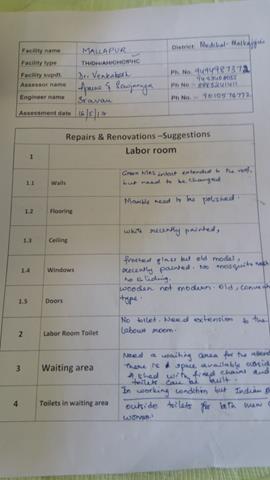 Facility name MALLAPUR District: Medchal-Malkajgiri
Facility type TH/DH/AH/CHC/PHC
Facility supdt. Dr. Venkatesh Ph No. 9494987372
Assessor name Ph No.
Engineer name Sravan Ph No. - 9010576772
Assessment date 16/5/17
Repairs & Renovations –Suggestions
1 Labor room
1.1 Walls Green tiles intact extended to the roof, but need to be changed
1.2 Flooring Marble need to be polished.
1.3 Ceiling white recently painted,
1.4 Windows frosted glass but old model, recently painted. No mosquito mesh no sliding.
1.5 Doors wooden not modern. Old, type.
2 Labor Room Toilet No toilet. Need extension to the labour room.
3 Waiting area Need a waiting area for the there is space available outside shed with fixed chairs and toilets can be built.
4 Toilets in waiting area In working condition but Indian outside toilets for both men women.